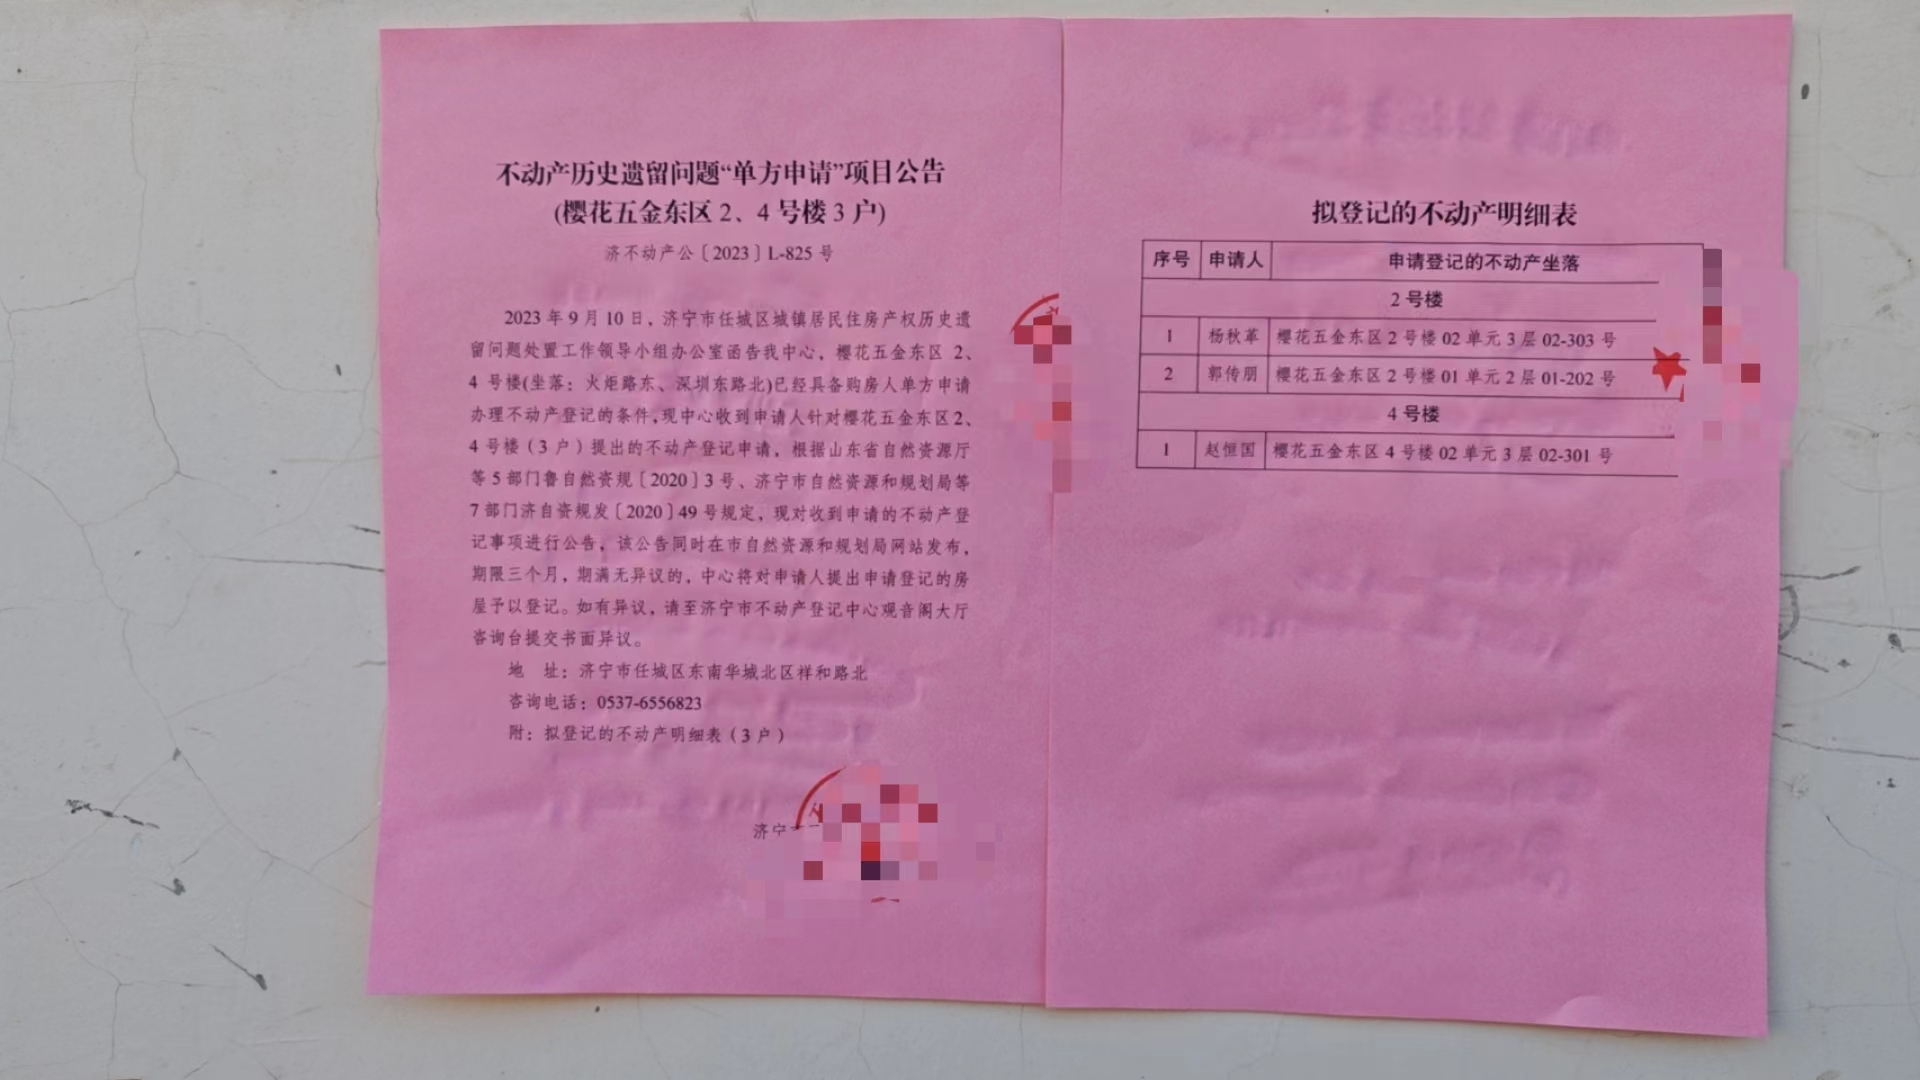 不动产历史遗留问题“单方申请”项目公告
(樱花五金东区 2、4 号楼 3 户)
济不动产公〔2023〕L-825 号
2023 年 9 月 10 日，济宁市任城区城镇居民住房产权历史遗
留问题处置工作领导小组办公室函告我中心，樱花五金东区 2、
4 号楼(坐落：火炬路东、深圳东路北)已经具备购房人单方申请
办理不动产登记的条件，现中心收到申请人针对樱花五金东区2、
4 号楼（3 户）提出的不动产登记申请，根据山东省自然资源厅
等 5 部门鲁自然资规〔2020〕3 号、济宁市自然资源和规划局等
7 部门济自资规发〔2020〕49 号规定，现对收到申请的不动产登
记事项进行公告，该公告同时在市自然资源和规划局网站发布，
期限三个月，期满无异议的，中心将对申请人提出申请登记的房
屋予以登记。如有异议，请至济宁市不动产登记中心观音阁大厅
咨询台提交书面异议。
地　址：济宁市任城区东南华城北区祥和路北
咨询电话：0537-6556823
附：拟登记的不动产明细表（3 户）
济宁
拟登记的不动产明细表
序号 申请人 申请登记的不动产坐落
2 号楼
1 杨秋革 樱花五金东区 2 号楼 02 单元 3 层 02-303 号
2 郭传朋 樱花五金东区 2 号楼 01 单元 2 层 01-202 号
4 号楼
1 赵恒国 樱花五金东区 4 号楼 02 单元 3 层 02-301 号